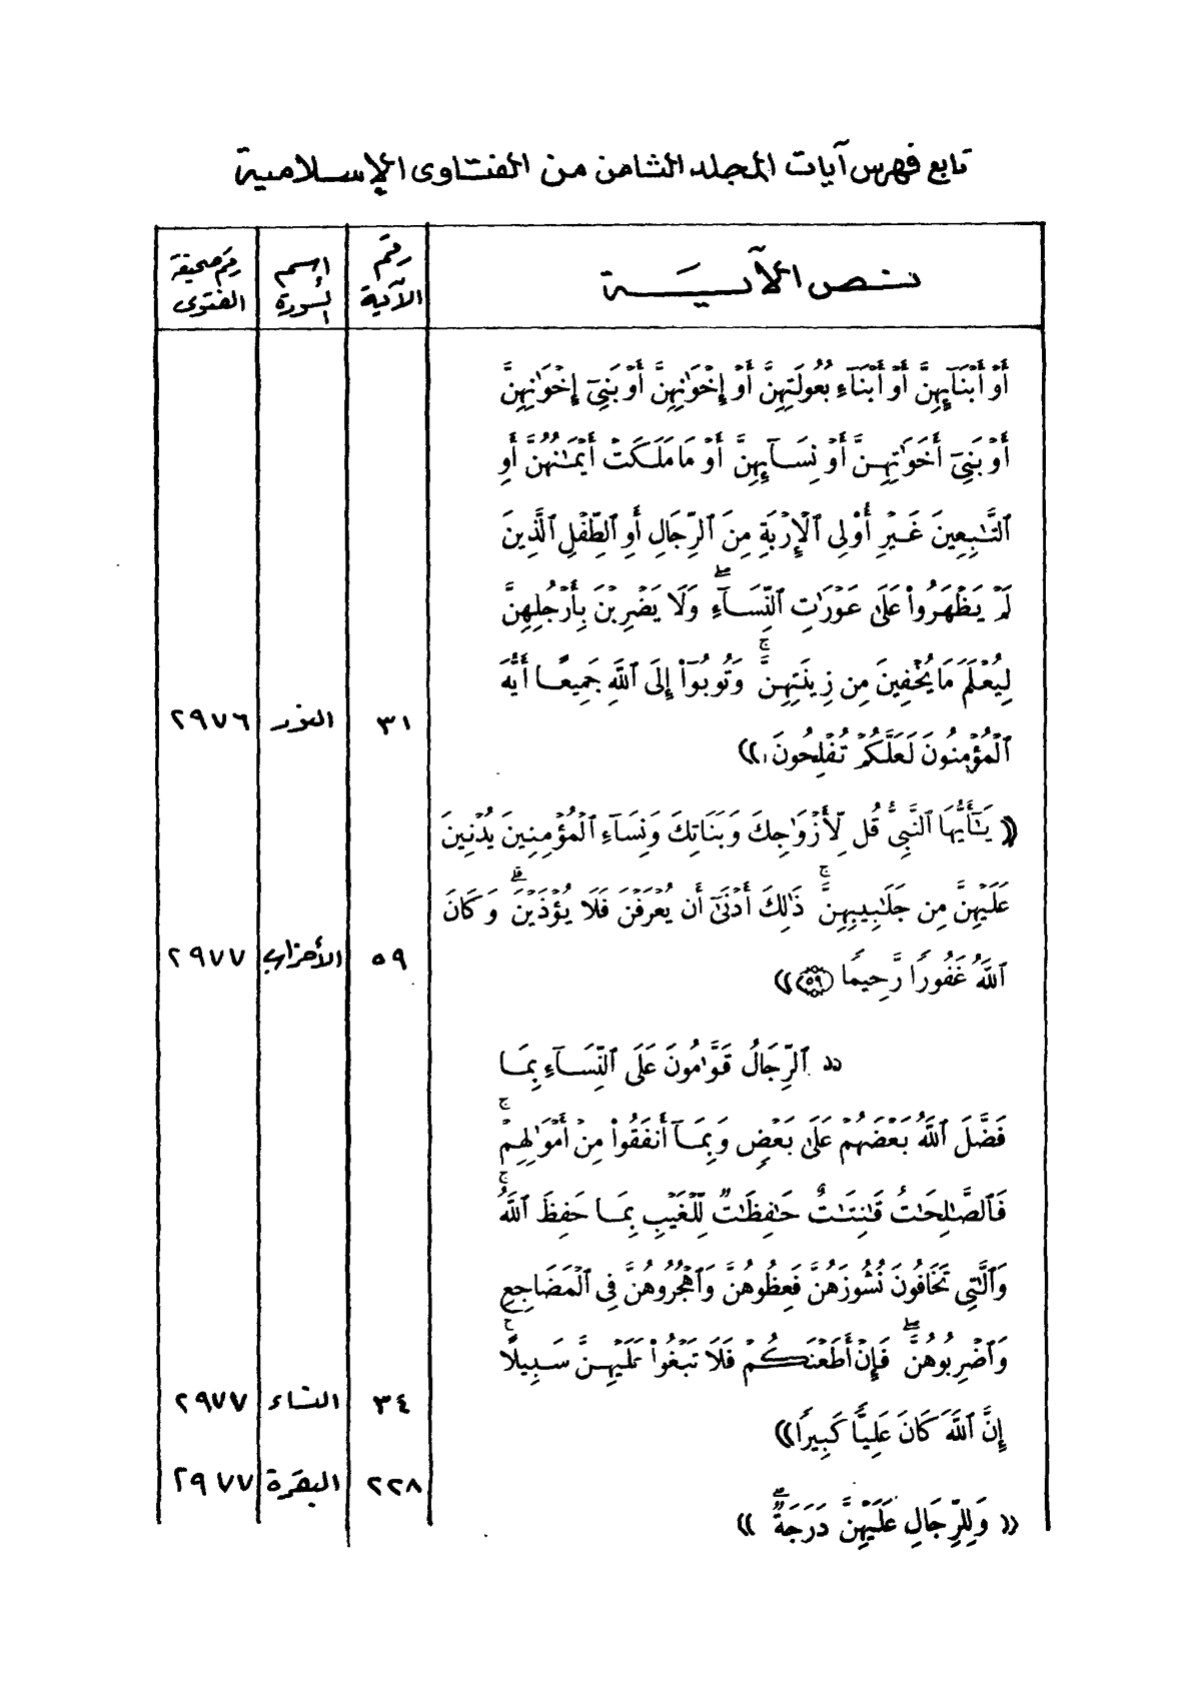 تابع فهرس آيات المجلد الثامن من الفتاوى الإسلامية
نص الآية
رقم الآية
إسم السورة
رقم صحيفة الفتوى
أَوْ أَبْنَآئِهِنَّ أَوْ أَبْنَآءِ بُعُولَتِهِنَّ أَوْ إِخْوَٰنِهِنَّ أَوْ بَنِىٓ إِخْوَٰنِهِنَّ
أَوْ بَنِىٓ أَخَوَٰتِهِنَّ أَوْ نِسَآئِهِنَّ أَوْ مَا مَلَكَتْ أَيْمَٰنُهُنَّ أَوِ
ٱلتَّٰبِعِينَ غَيْرِ أُو۟لِى ٱلْإِرْبَةِ مِنَ ٱلرِّجَالِ أَوِ ٱلطِّفْلِ ٱلَّذِينَ
لَمْ يَظْهَرُوا۟ عَلَىٰ عَوْرَٰتِ ٱلنِّسَآءِۖ وَلَا يَضْرِبْنَ بِأَرْجُلِهِنَّ
لِيُعْلَمَ مَا يُخْفِينَ مِن زِينَتِهِنَّۚ وَتُوبُوٓا۟ إِلَى ٱللَّهِ جَمِيعًا أَيُّهَ
ٱلْمُؤْمِنُونَ لَعَلَّكُمْ تُفْلِحُونَ))
٣١ النور ٢٩٧٦
(( يَٰٓأَيُّهَا ٱلنَّبِىُّ قُل لِّأَزْوَٰجِكَ وَبَنَاتِكَ وَنِسَآءِ ٱلْمُؤْمِنِينَ يُدْنِينَ
عَلَيْهِنَّ مِن جَلَٰبِيبِهِنَّۚ ذَٰلِكَ أَدْنَىٰٓ أَن يُعْرَفْنَ فَلَا يُؤْذَيْنَۗ وَكَانَ
ٱللَّهُ غَفُورًا رَّحِيمًا ٥٩))
٥٩ الأحزاب ٢٩٧٧
(( ٱلرِّجَالُ قَوَّٰمُونَ عَلَى ٱلنِّسَآءِ بِمَا
فَضَّلَ ٱللَّهُ بَعْضَهُمْ عَلَىٰ بَعْضٍ وَبِمَآ أَنفَقُوا۟ مِنْ أَمْوَٰلِهِمْۚ
فَٱلصَّٰلِحَٰتُ قَٰنِتَٰتٌ حَٰفِظَٰتٌ لِّلْغَيْبِ بِمَا حَفِظَ ٱللَّهُۚ
وَٱلَّٰتِى تَخَافُونَ نُشُوزَهُنَّ فَعِظُوهُنَّ وَٱهْجُرُوهُنَّ فِى ٱلْمَضَاجِعِ
وَٱضْرِبُوهُنَّۖ فَإِنْ أَطَعْنَكُمْ فَلَا تَبْغُوا۟ عَلَيْهِنَّ سَبِيلًاۗ
إِنَّ ٱللَّهَ كَانَ عَلِيًّا كَبِيرًا))
٣٤ النساء ٢٩٧٧
(( وَلِلرِّجَالِ عَلَيْهِنَّ دَرَجَةٌۗ ))
٢٢٨ البقرة ٢٩٧٧